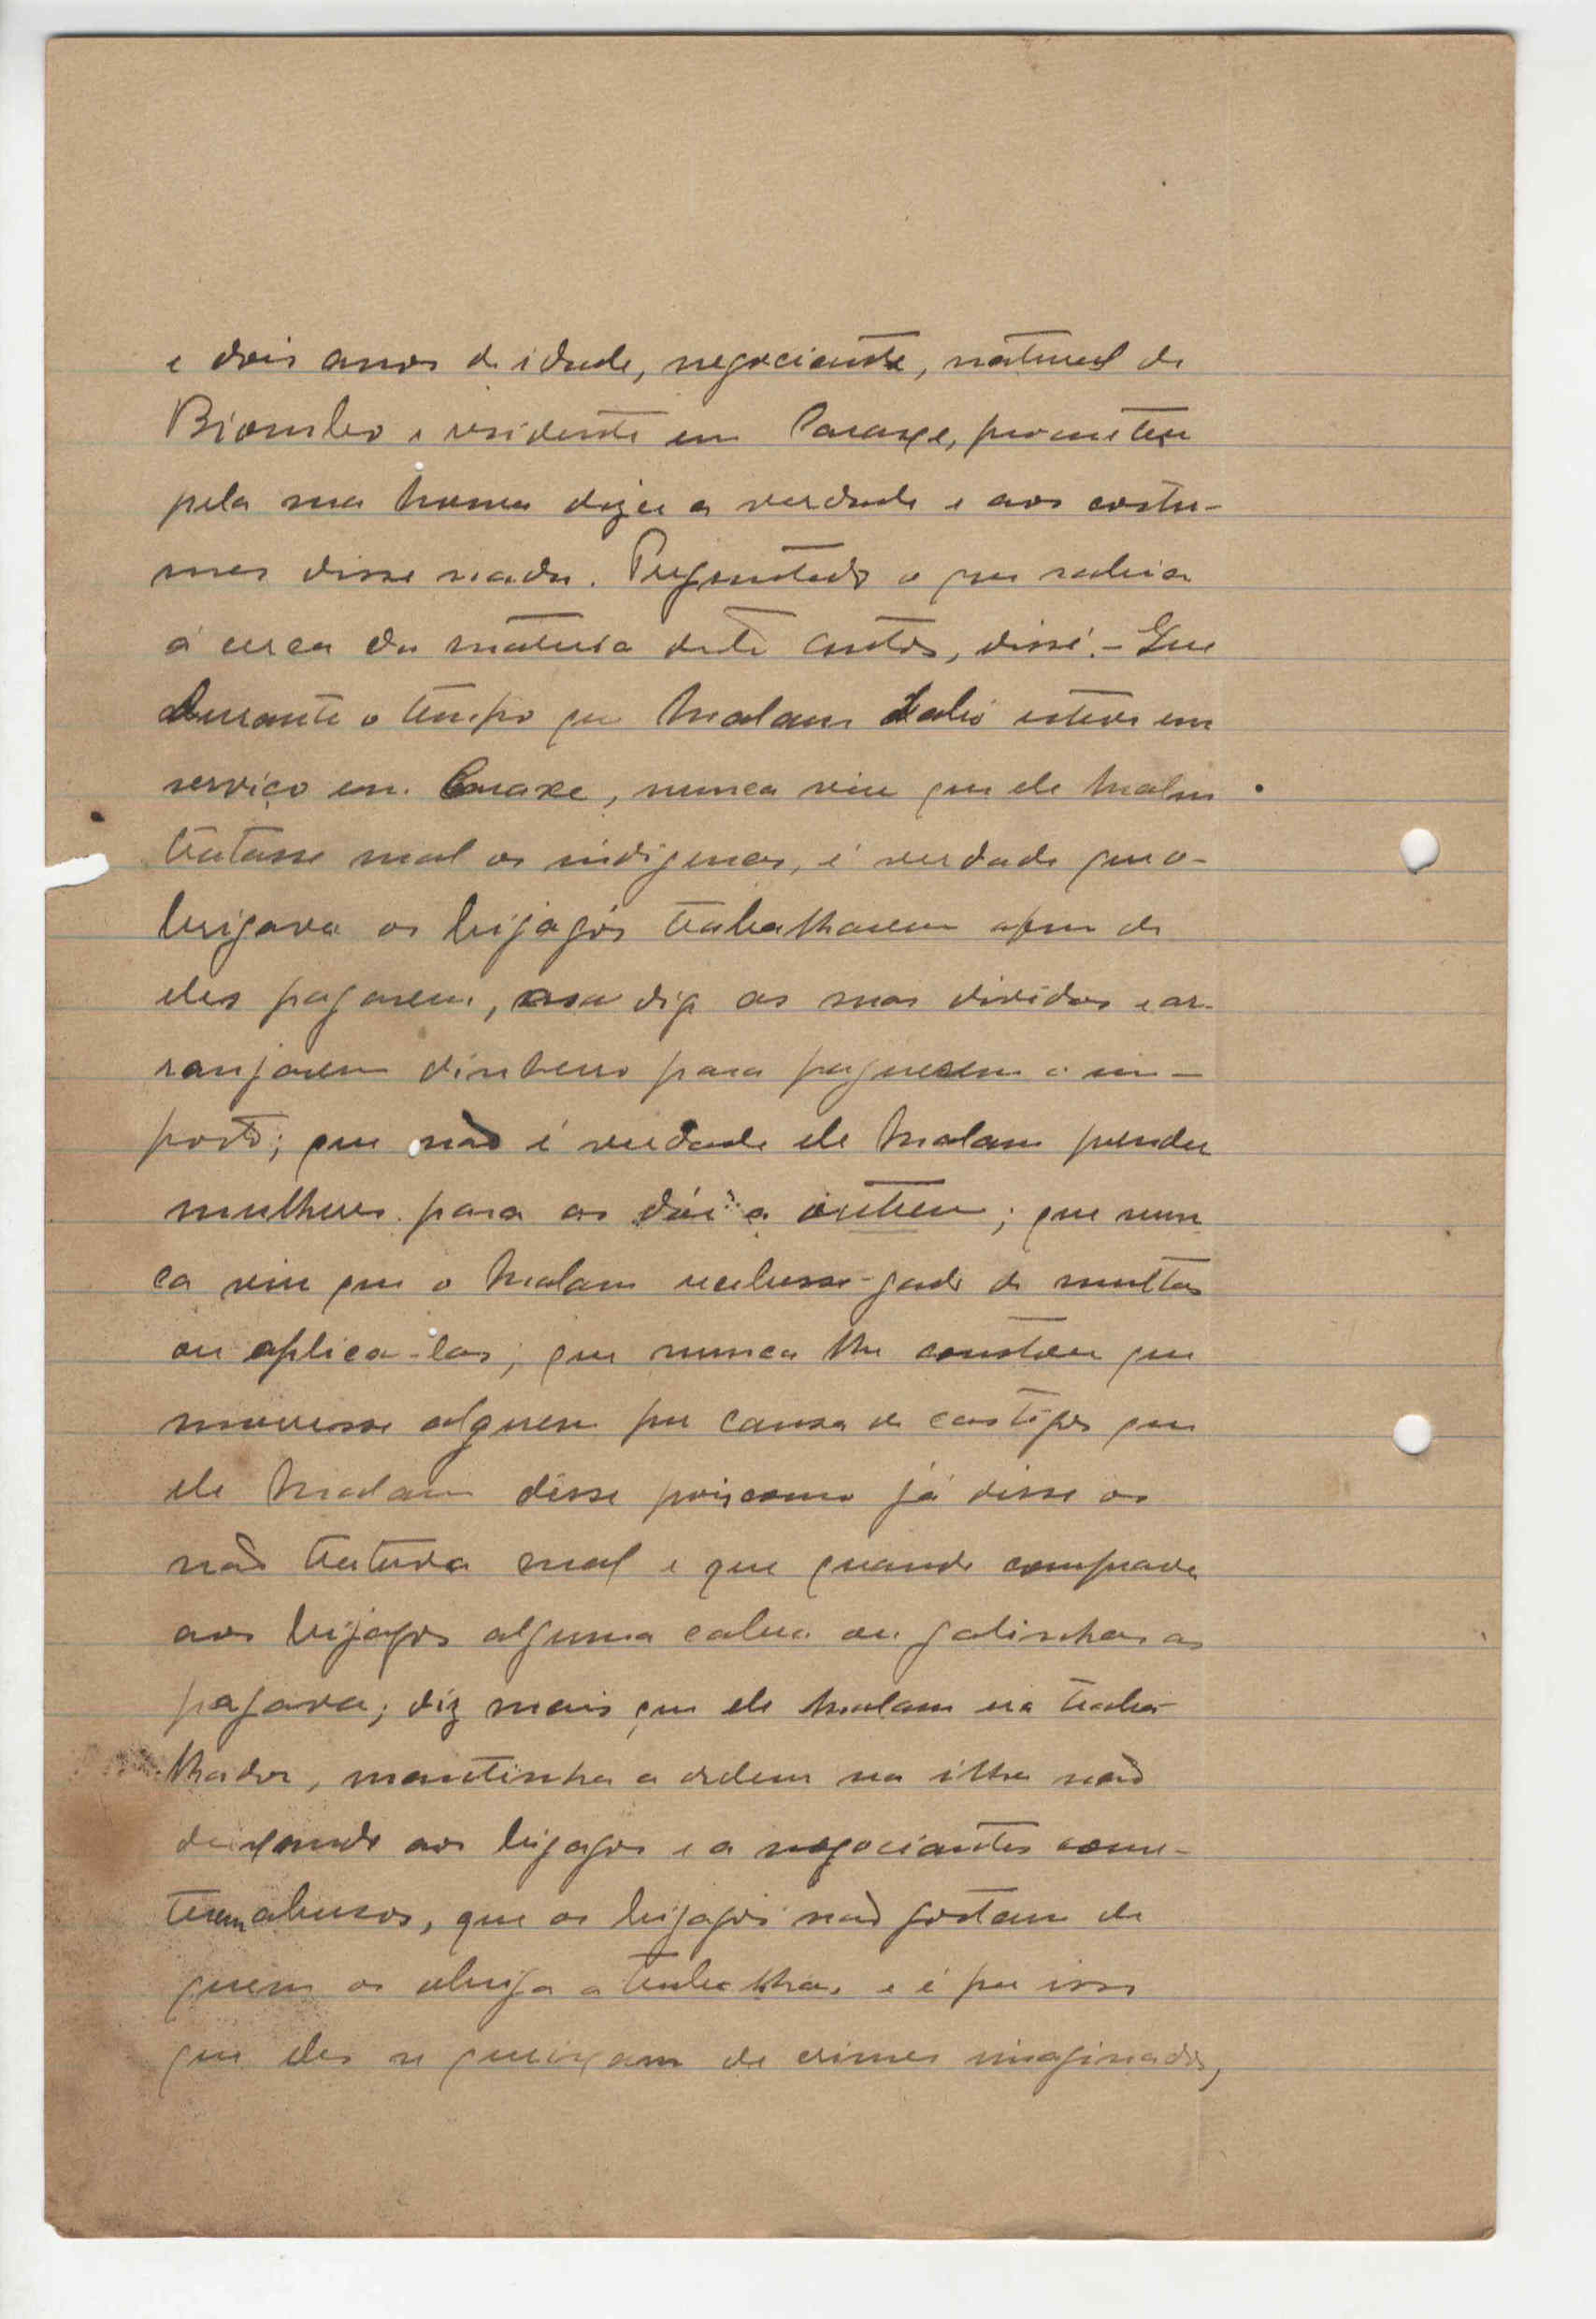 e dois anos de idade, negociante, natural de
Biombo e residente em Caraxe, prometeu
pela sua honra dizer a verdade e aos costu-
mes disse nada. Preguntado o que sabia
á cerca da materia deste autos, disse: - Que
durante o tempo que Malam esteve em
serviço em Caraxe, nunca viu que ele Malam
tratasse mal os indigenas, é verdade que o-
brigava os bijagós trabalharem afim de
eles pagarem, digo as suas dividas e ar-
ranjarem dinheiro para pagarem o im-
posto; que não é verdade ele Malam prender
mulheres para as dár a outrem; que nun
ca viu que o Malam recebesse gado de multas
ou aplica-las; que nunca lhe constou que
morresse alguem por causa de castigos que
ele Malam désse pois como já disse os
não tratava mal e que quando comprava
aos bijagós alguma cabra ou galinhas as
pagava; diz mais que ele Malam era traba-
lhador, mantinha a ordem na ilha não
deixando aos bijagós e a negociantes come-
terem abusos, que os bijagós não gostam de
quem os obriga a trabalhar e é por isso
que eles se queixam de crimes imaginados,